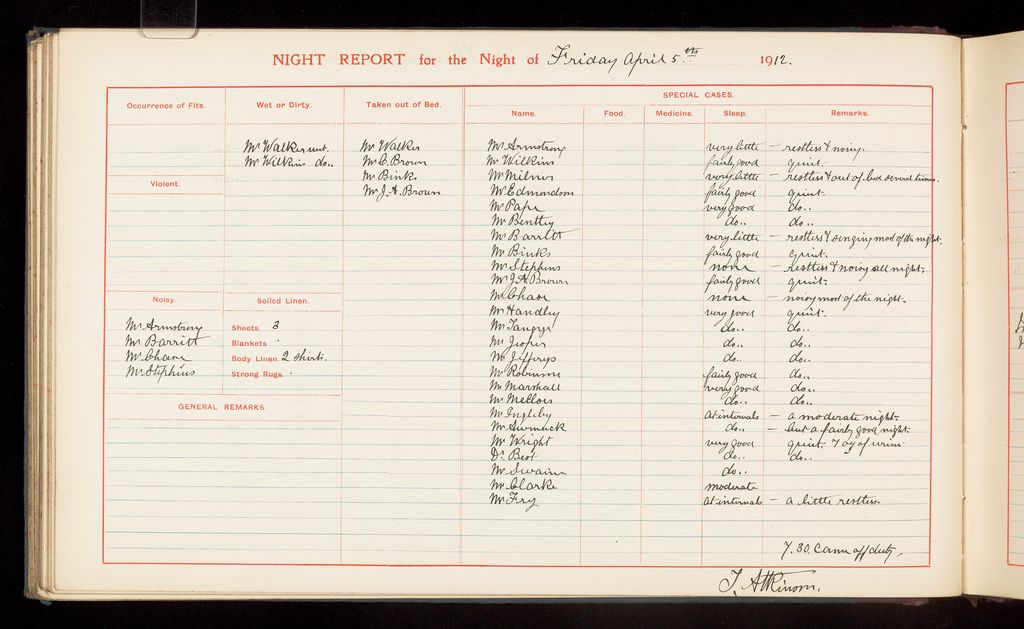 NIGHT REPORT for the Night of Friday April 5th 1912.
SPECIAL CASES.
Occurrence of Fits. Wet or Dirty. Taken out of Bed. Name. Food. Medicine. Sleep. Remarks.
Mr Walker wet. Mr Walker Mr Armstrong very little – restless & noisy.
Mr Wilkins do.. Mr C. Brown Mr Wilkins fairly good quiet.
Mr Binks Mr Milner very little – restless & out of bed several times.
Violent. Mr J. A. Brown Mr Edmondson fairly good quiet.
Mr Pape very good do..
Mr Bentley do.. do..
Mr Barritt very little – restless & singing most of the night.
Mr Binks fairly good quiet.
Mr Stephens none – restless & noisy all night.
Mr J. A. Brown fairly good quiet.
Noisy. Soiled Linen. Mr Chase none – noisy most of the night.
Mr Handley very good quiet.
Mr Armstrong Sheets 3 Mr do.. do..
Mr Barritt Blankets Mr do.. do..
Mr Chase Body Linen 2 shirts. Mr Jeffreys do.. do..
Mr Stephens Strong Rugs Mr Robinson fairly good do..
Mr Marshall very good do..
GENERAL REMARKS. Mr Mellors do.. do..
Mr Ingleby at intervals – a moderate night.
Mr do.. – but a fairly good night.
Mr Wright very good quiet. 7 oz of urine
Dr Best do.. do..
Mr Swain do..
Mr Clarke moderate
Mr Fry at intervals – a little restless.
7.30. Came off duty.
T. Atkinson.